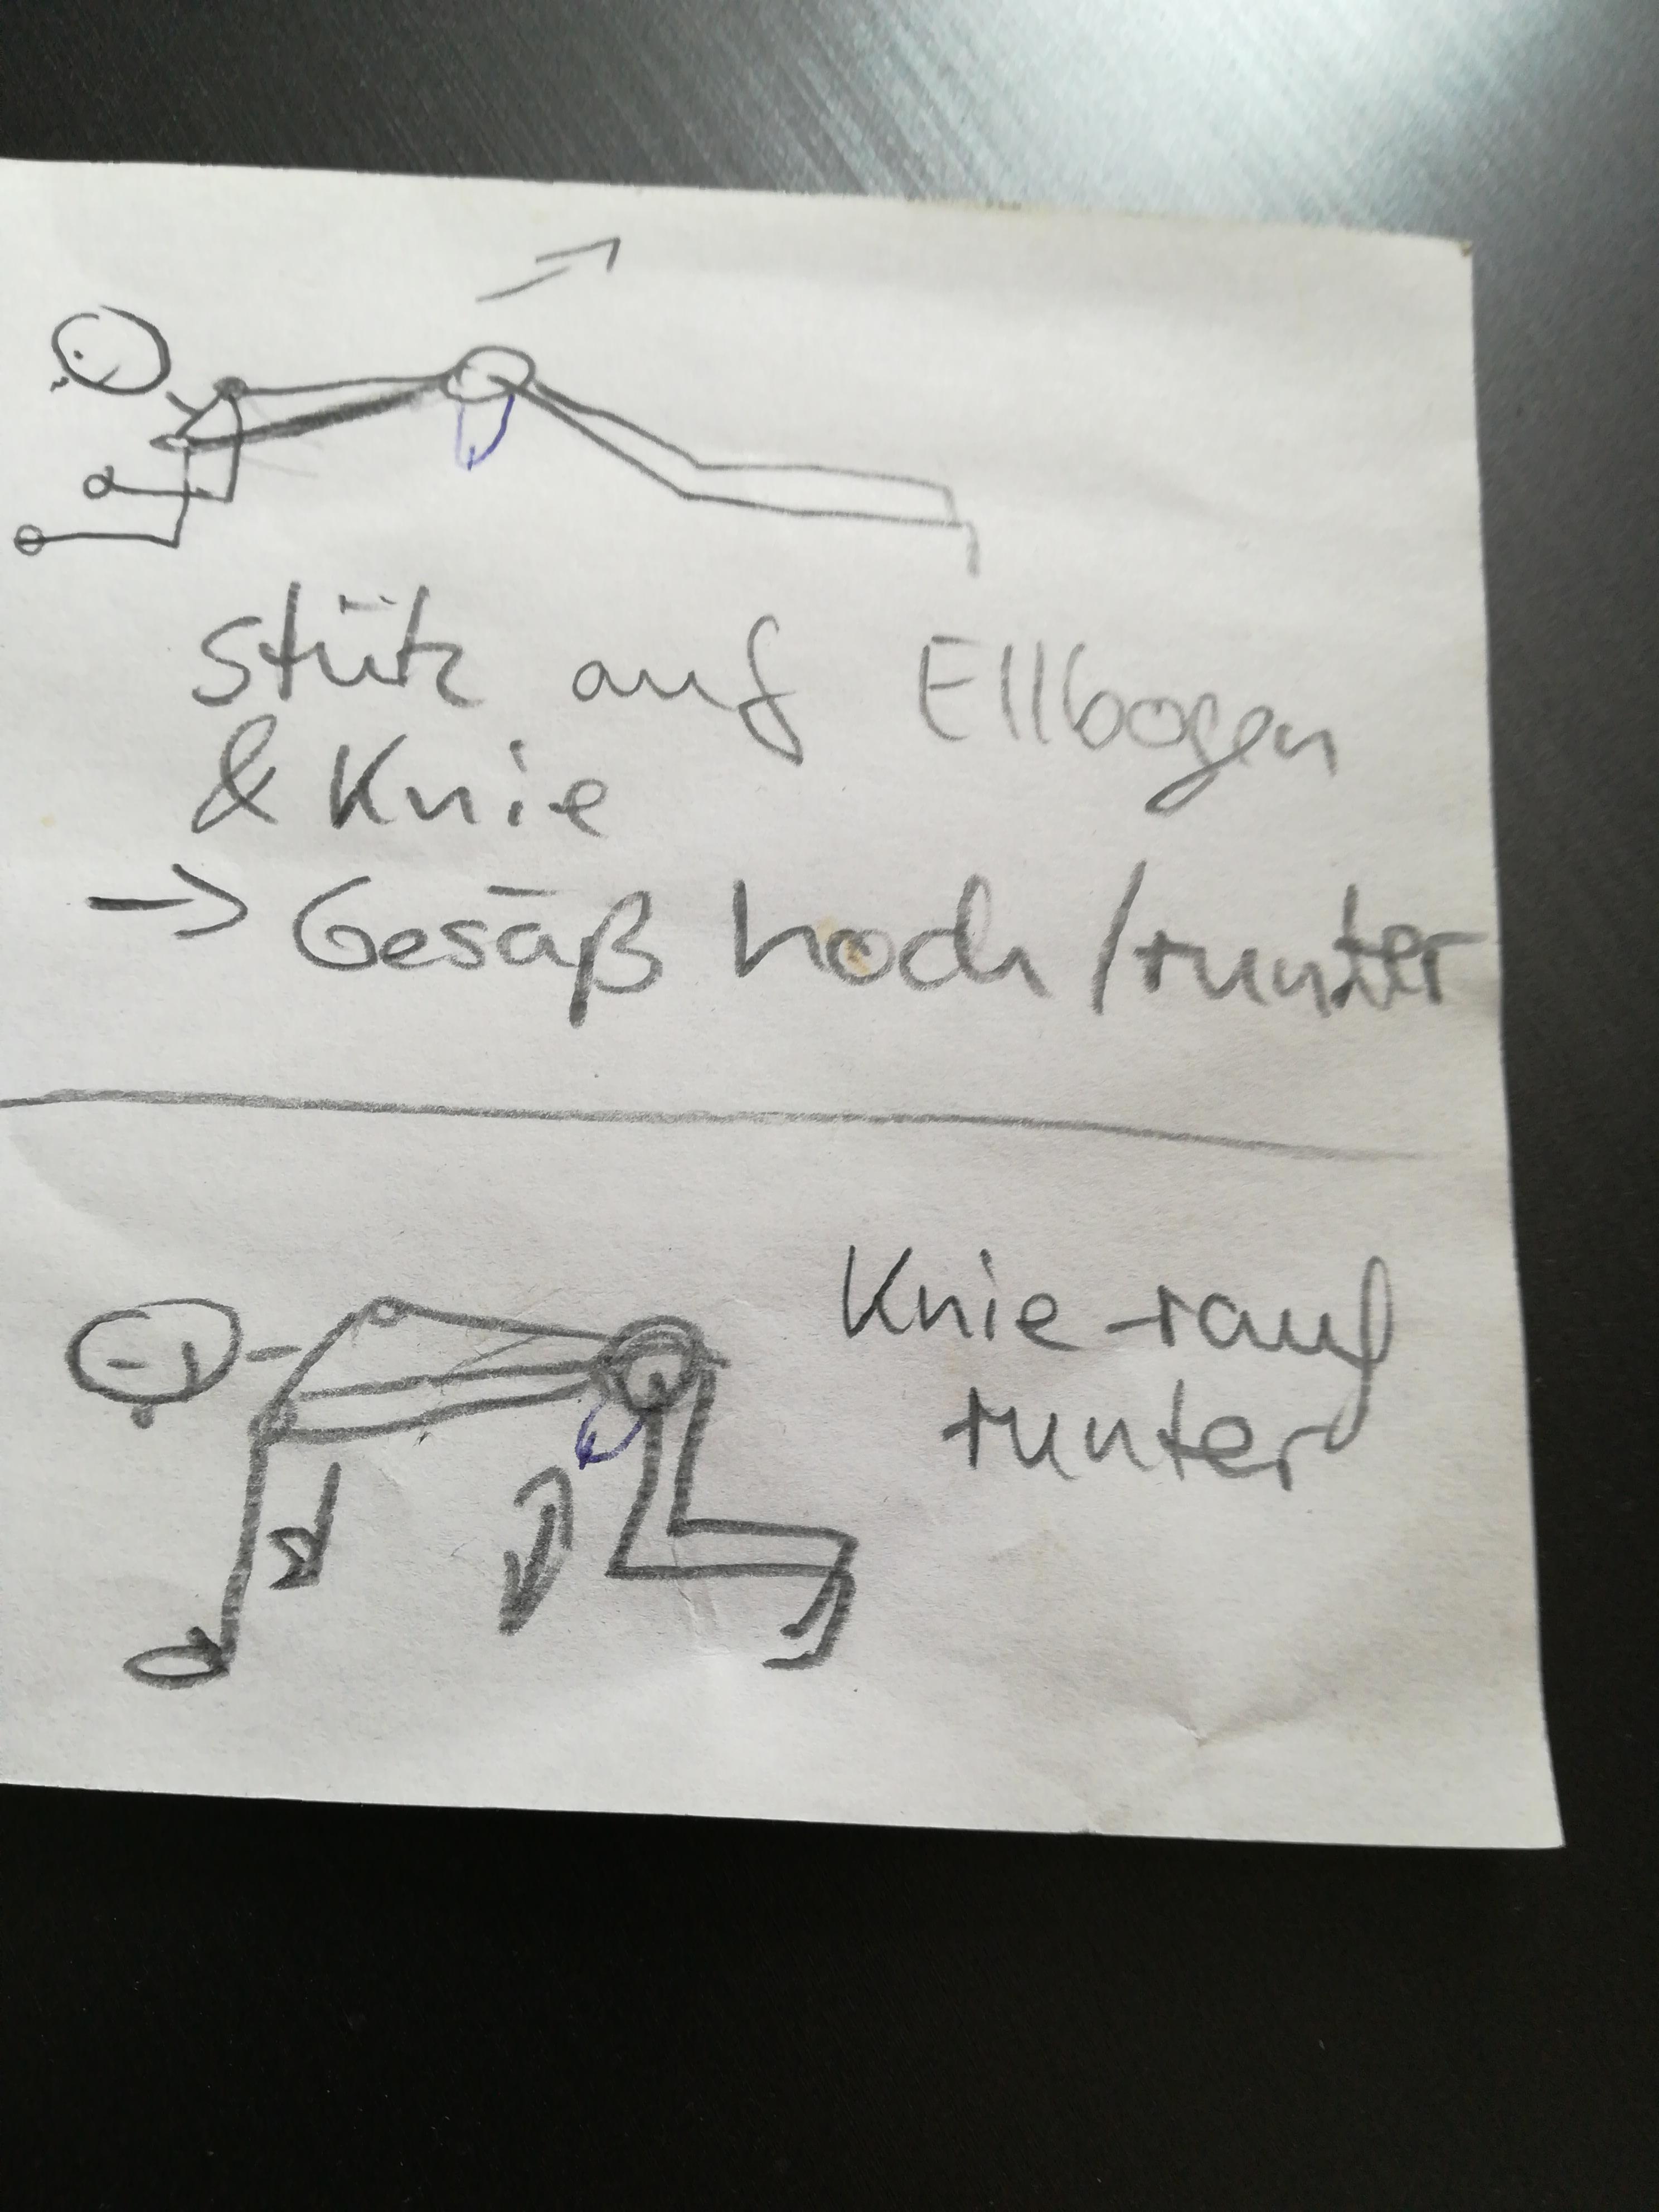 Stütz auf Ellbogen
& Knie
→ Gesäß hoch/runter
Knie rauf
runter